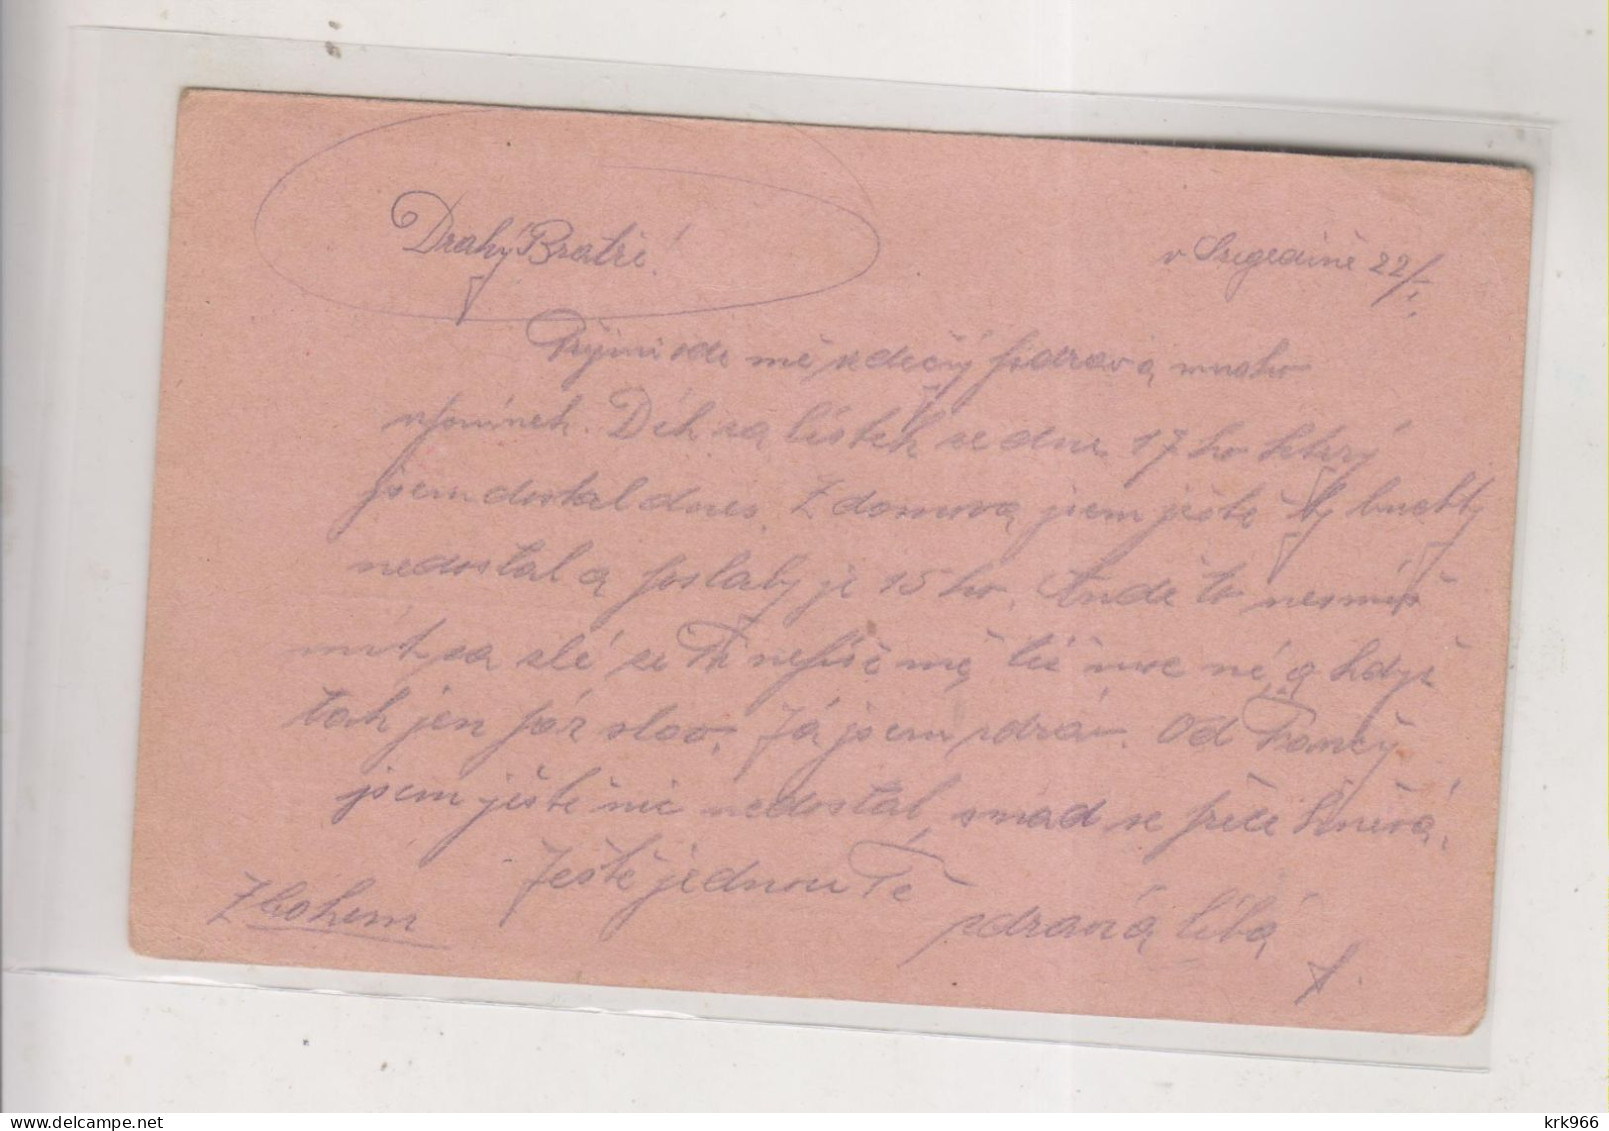 Drahý Bratře!
v Szegedině 22/I.
Přijmi ode mě srdečný pozdrav a mnoho
vzpomínek. Dík za lístek ze dne 17 ho který
jsem dostal dnes. Z domova jsem ještě ty buchty
nedostal a poslaly je 15 ho. to nesmíš
mít za zlé že Ti nepíšě mě též moc ne, a když
tak jen pár slov. Já jsem zdráv. Od Fančy
jsem ještě nic nedostal, snad se přece hněvá.
Ještě jednou Tě
Zbohem
zdravá líbá